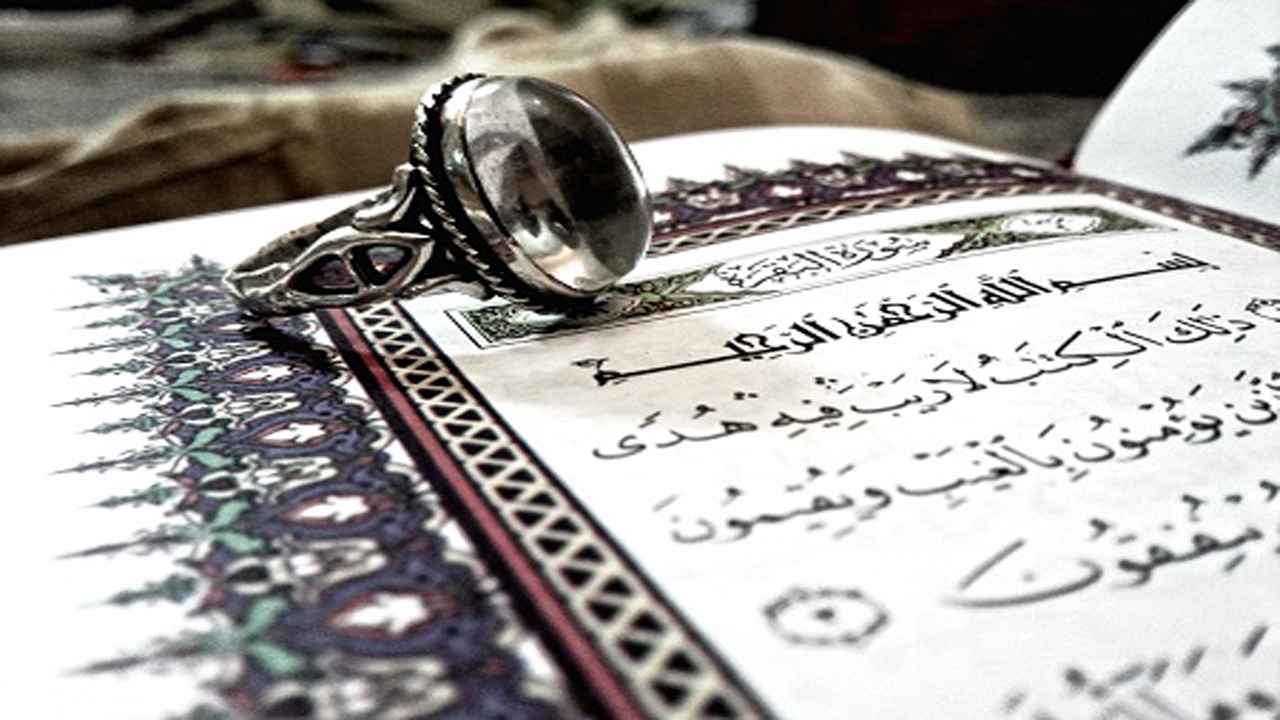 سورة البقرة
بسم الله الرحمن الرحيم
ذَٰلِكَ ٱلْكِتَٰبُ لَا رَيْبَ فِيهِ هُدًى
يُؤْمِنُونَ بِٱلْغَيْبِ وَيُقِيمُونَ
يُنفِقُونَ